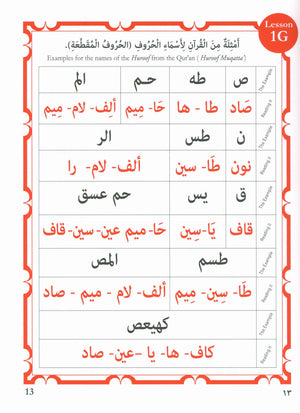 Lesson
1G
أَمْثِلَةٌ مِنَ الْقُرْآنِ لِأَسْمَاءِ الْحُرُوفِ (الْحُرُوفُ الْمُقَطَّعَةِ).
Examples for the names of the Huroof from the Qur'an ( Huroof Muqatta')
The Example ص طه حـم الم
Reading it صَاد طا - ها حَا- مِيم أَلِف- لام- مِيم
The Example ن طس الر
Reading it نون طَا- سِين ألف- لام- را
The Example ق يس حم عسق
Reading it قاف يَا-سِين حَا-ميم عين-سين-قاف
The Example طسم المص
Reading it طَا- سِين- مِيم ألف- لام - ميم - صاد
The Example كهيعص
Reading it كاف- ها- يا -عين- صاد
13
١٣